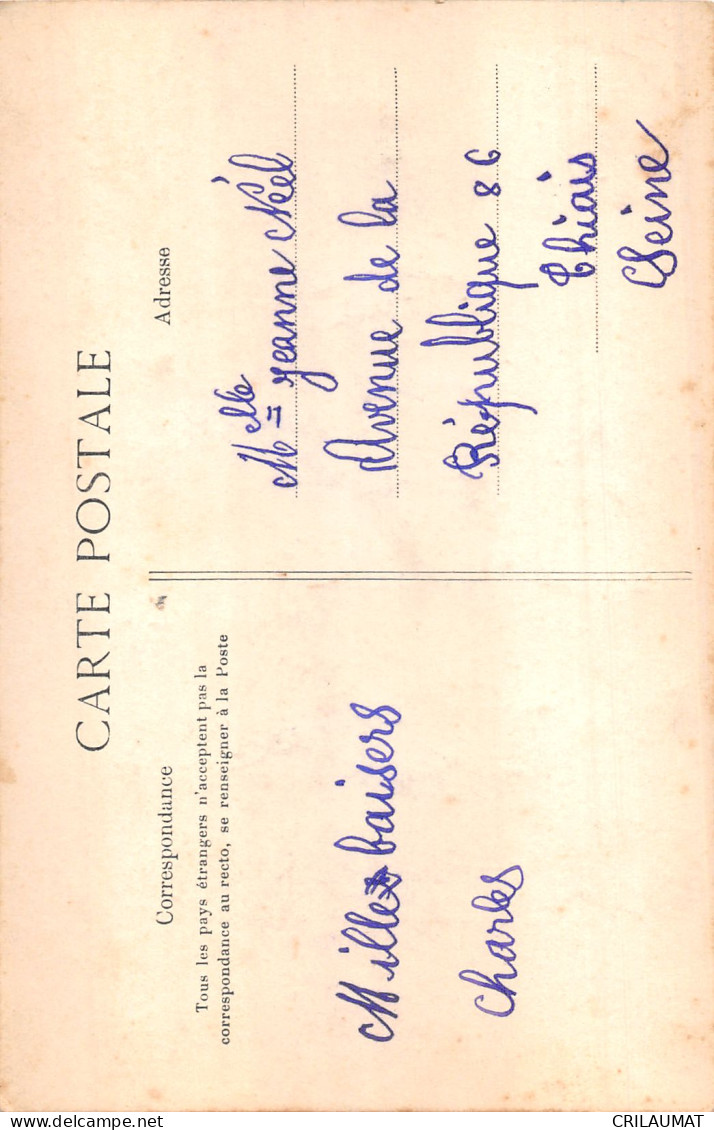 CARTE POSTALE
Correspondance
Tous les pays étrangers n'acceptent pas la
correspondance au recto, se renseigner à la Poste
Mille baisers
Charles
Adresse
Melle Jeanne Néel
Avenue de la
République 86
Thiais
Seine
delcampe.net
CRILAUMAT